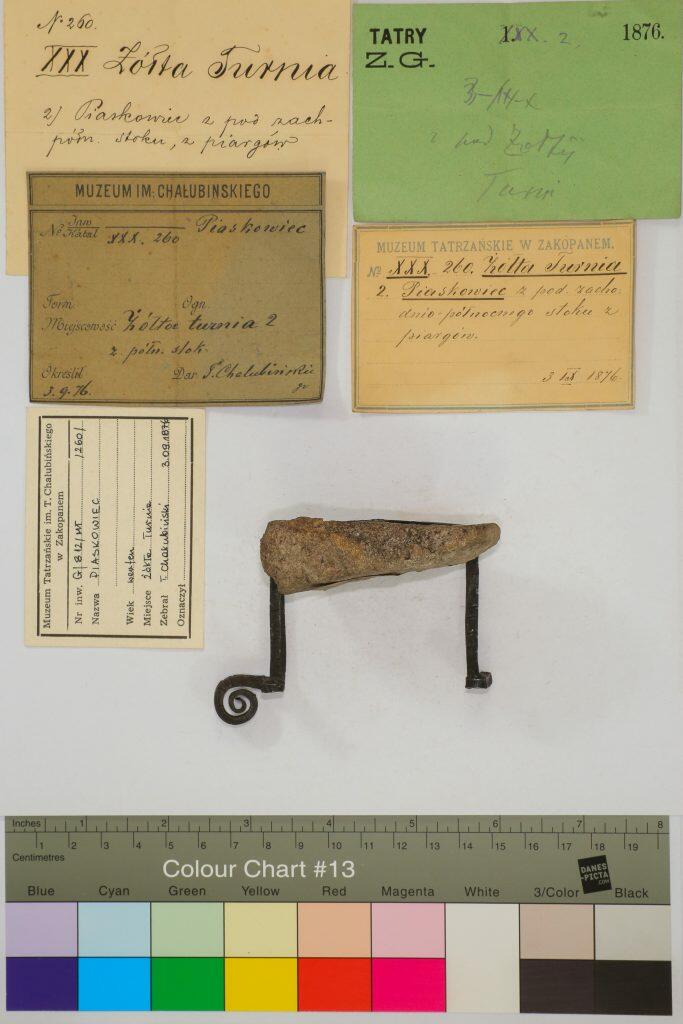 N 260.
XXX Żółta Turnia
2) Piaskowiec z pod zach-
półn. stoku, z piargów
TATRY XXX. 2, 1876.
Z. G.
z pod Żółtej
Turni
MUZEUM IM: CHAŁUBIŃSKIEGO
№ Inw
Katal XXX. 260 Piaskowiec
Form Ogn
Miejscowość Żółta turnia 2
z półn. stok.
Określił Dar T. Chałubiński
3. 9. 76.
MUZEUM TATRZAŃSKIE W ZAKOPANEM.
№ XXX. 260. Żółta Turnia
2. Piaskowiec z pod zacho-
dnio-północnego stoku z
piargów.
3 IX 1876.
Muzeum Tatrzańskie im. T. Chałubińskiego
w Zakopanem
Nr inw. G/812/MT /260/
Nazwa PIASKOWIEC
Wiek werfen
Miejsce Żółta Turnia
Zebrał T. Chałubiński 3.09.1876
Oznaczył
Inches 1 2 3 4 5 6 7 8
1 2 3 4 5 6 7 8 9 10 11 12 13 14 15 16 17 18 19
Centimetres
Colour Chart #13
DANES
-PICTA
.COM
Blue Cyan Green Yellow Red Magenta White 3/Color Black